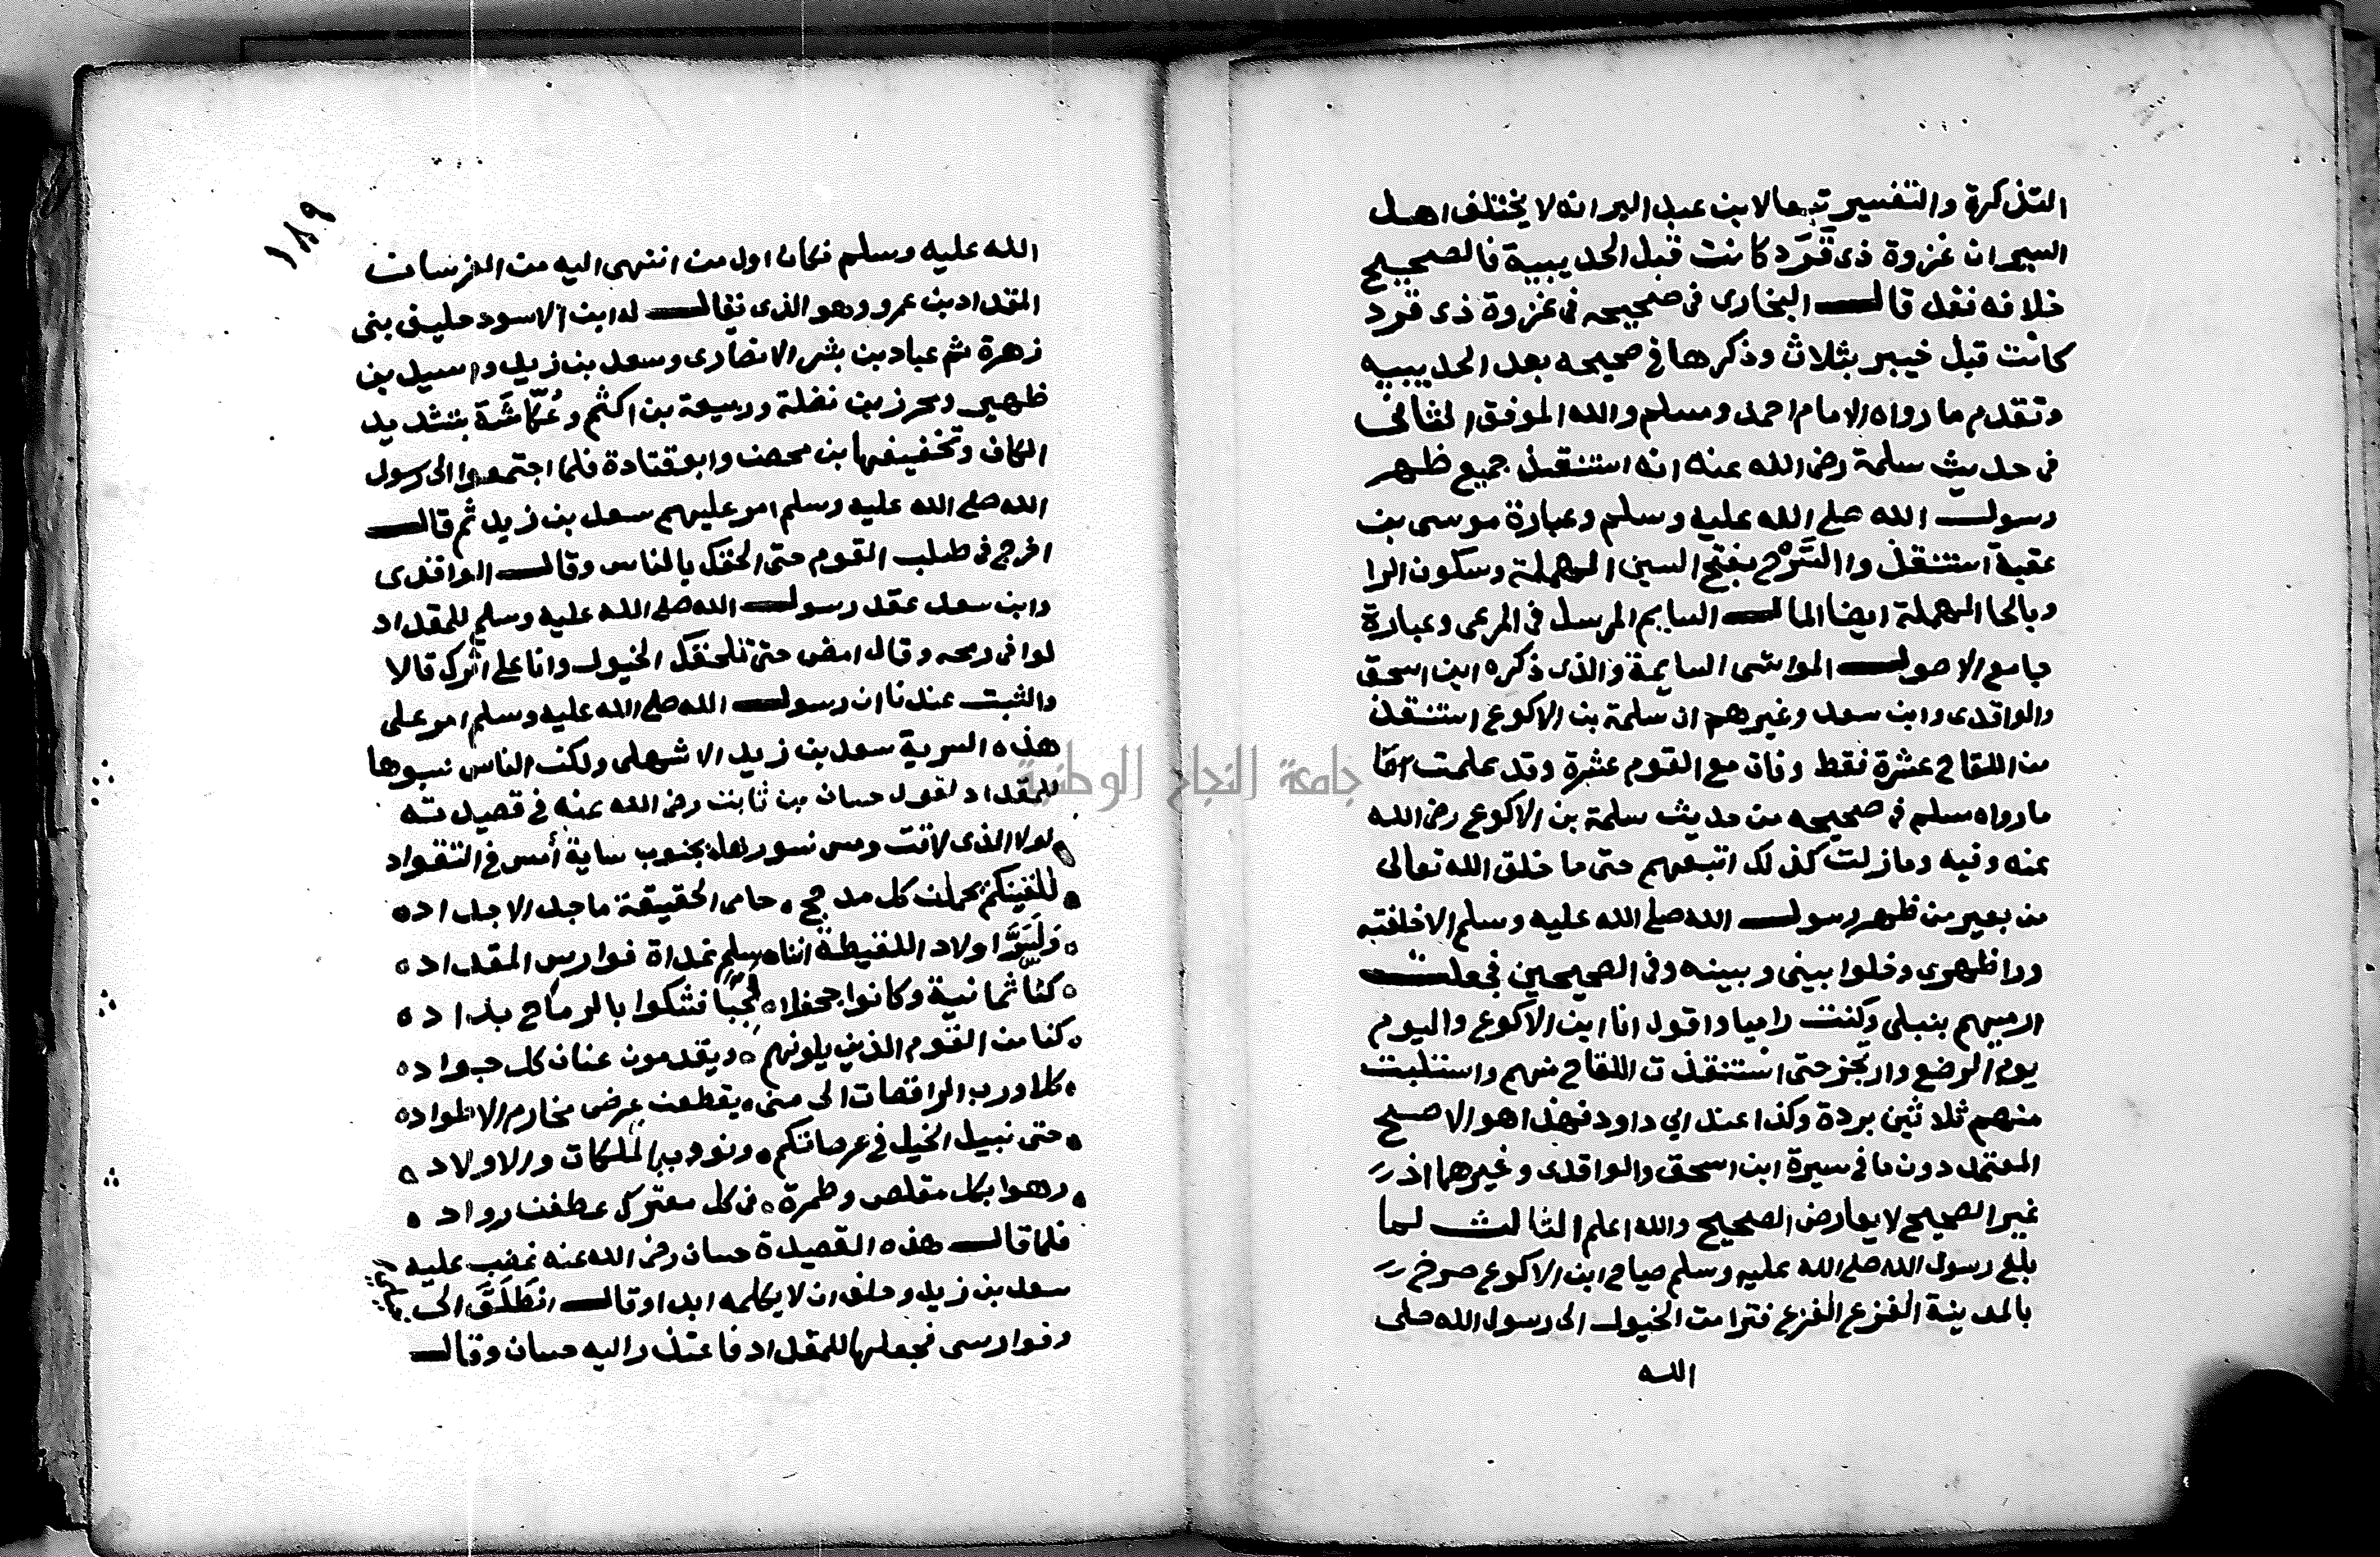 التذكرة والتفسير تبعا لابن عبد البر انه لا يختلف اهل
السير ان غزوة ذى قَرَد كانت قبل الحديبية فالصحيح
خلافه فقد قال البخارى فى صحيحه فى غزوة ذى قرد
كانت قبل خيبر بثلاث وذكرها فى صحيحه بعد الحديبيه
وتقدم ما رواه الامام احمد ومسلم والله الموفق الثانى
فى حديث سلمة رضى الله عنه انه استنقذ جميع ظهر
رسول الله صلى الله عليه وسلم وعبارة موسى بن
عقبة استنقذ واالسَّرْح بفتح السين المهملة وسكون الرا
وبالحا المهملة ايضا المال السايم المرسل فى المرعى وعبارة
جامع الاصول المواشى السايمة والذى ذكره ابن اسحق
والواقدى وابن سعد وغيرهم ان سلمة بن الاكوع استنقذ
من اللقاح عشرة فقط وفات مع القوم عشرة وقد علمت
ما رواه مسلم فى صحيحه من حديث سلمة بن الاكوع رضى الله
عنه وفيه وما زلت كذلك اتبعهم حتى ما خلق الله تعالى
من بعير من ظهر رسول الله صلى الله عليه وسلم الا خلفته
ورا ظهرى وخلوا بينى وبينه وفى الصحيحين فجعلت
ارميهم بنبلى وكنت راميا واقول انا ابن الاكوع واليوم
يوم الرضع وارتجز حتى استنقذت اللقاح منهم واستلبت
منهم ثلاثين بردة وكذا عند ابى داود فهذا هو الاصح
المعتمد دون ما فى سيرة ابن اسحق والواقدى وغيرهما اذ
غير الصحيح لا يعارض الصحيح والله اعلم الثالث لما
بلغ رسول الله صلى الله عليه وسلم صياح ابن الاكوع صرخ
بالمدينة الفزع الفزع فترامت الخيول الى رسول الله صلى
الله
١٨٩
الله عليه وسلم فكان اول من انتهى اليه من الفرسان
المقداد بن عمرو وهو الذى يقال له ابن الاسود حليف بنى
زهرة ثم عباد بن بشر الانصارى وسعد بن زيد واسيد بن
ظهير ومحرز بن نضلة وربيعة بن اكثم وعُكّاشَة بتشديد
الكاف وتخفيفها بن محصن وابو قتادة فلما اجتمعوا الى رسول
الله صلى الله عليه وسلم امر عليهم سعد بن زيد ثم قال
اخرج فى طلب القوم حتى الحقك بالناس وقال الواقدى
وابن سعد عقد رسول الله صلى الله عليه وسلم للمقداد
لوا فى رمحه وقال امض حتى تلحقك الخيول وانا على اثرك قالا
والثبت عندنا ان رسول الله صلى الله عليه وسلم امر على
هذه السرية سعد بن زيد الاشهلى ولكن الناس نسبوها
للمقداد لقول حسان بن ثابت رضى الله عنه فى قصيدته
لولا الذى لاقت ومس نسورها بجنوب ساية أمس فى التقواد
للقينكم يحملن كل مدجج حامى الحقيقة ماجد الاجداد
ولَسَرَّ اولاد اللقيطة اننا سلم غداة فوارس المقداد
كنا ثمانية وكانوا جحفلا لجبًا فشكوا بالرماح بداد
كنا من القوم الذين يلونهم ويقدمون عنان كل جواد
كلا ورب الراقصات الى منى يقطعن عرض مخارم الاطواد
حتى نبيل الخيل فى عرصاتكم ونووب بالملكات والاولاد
رهوا بكل مقلص وطمرة فى كل معترك عطفن رواد
فلما قال هذه القصيدة حسان رضى الله عنه غضب عليه
سعد بن زيد وحلف ان لا يكلمه ابدا وقال انطَلَقَ الى
وفوارسى فجعلها للمقداد فاعتذر اليه حسان وقال
جامعة النجاح الوطنية